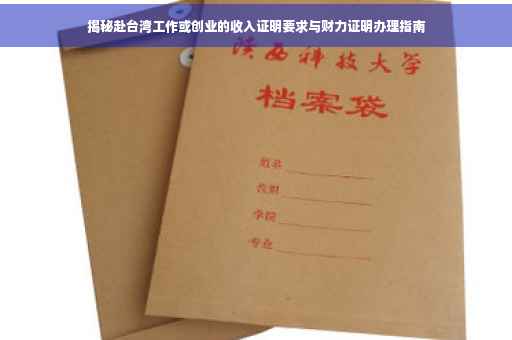 揭秘赴台湾工作或创业的收入证明要求与财力证明办理指南
陕西科技大学
档案袋
姓名
性别
学院
专业